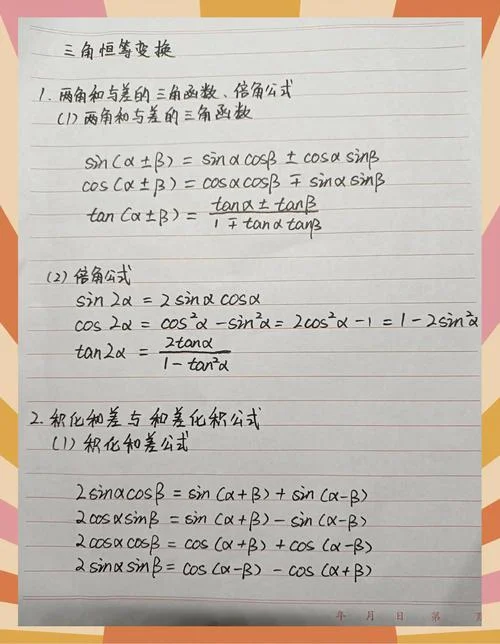 三角恒等变换
1. 两角和与差的三角函数、倍角公式
(1) 两角和与差的三角函数
sin(α±β) = sinαcosβ ± cosαsinβ
cos(α±β) = cosαcosβ ∓ sinαsinβ
tan(α±β) = (tanα ± tanβ)/(1 ∓ tanαtanβ)
(2) 倍角公式
sin2α = 2sinαcosα
cos2α = cos²α - sin²α = 2cos²α - 1 = 1 - 2sin²α
tan2α = 2tanα/(1 - tan²α)
2. 积化和差与和差化积公式
(1) 积化和差公式
2sinαcosβ = sin(α+β) + sin(α-β)
2cosαsinβ = sin(α+β) - sin(α-β)
2cosαcosβ = cos(α+β) + cos(α-β)
2sinαsinβ = cos(α-β) - cos(α+β)
年 月 日 第